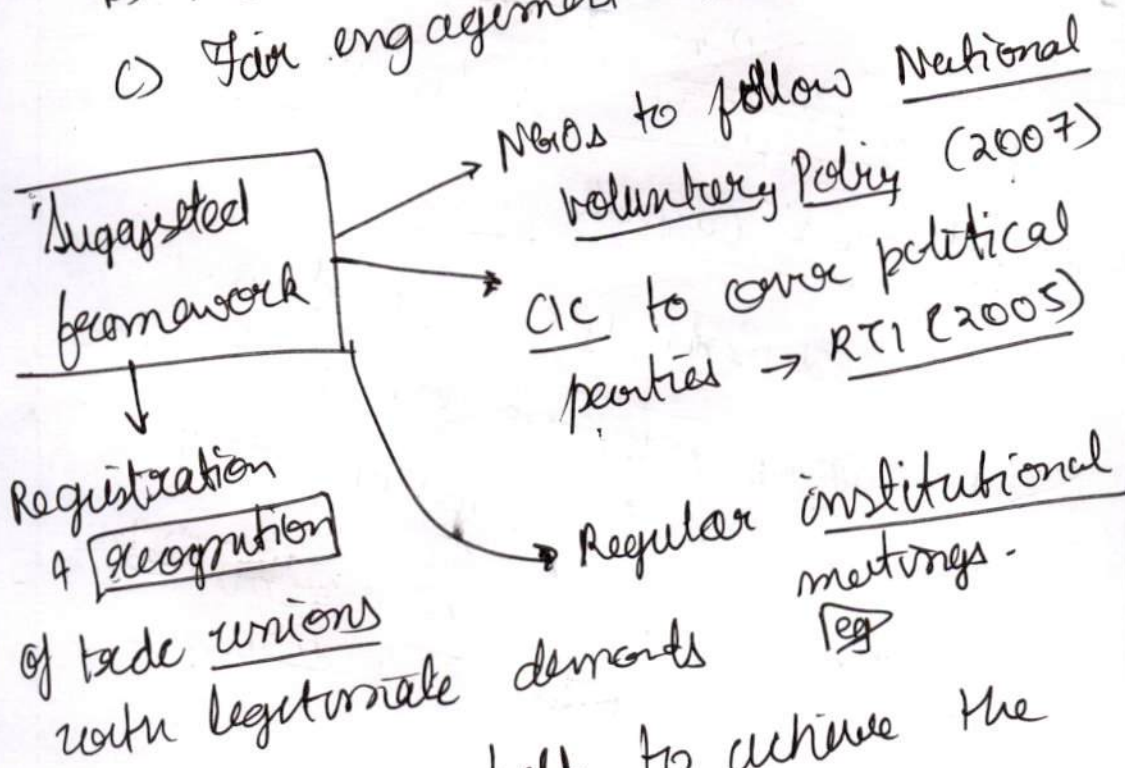 c) Fair engagement
Suggested
framework
NGOs to follow National
voluntary Policy (2007)
CIC to cover political
parties → RTI (2005)
Regular institutional
meetings.
eg
Registration
& recognition
of trade unions
with legitimate demands
to achieve the